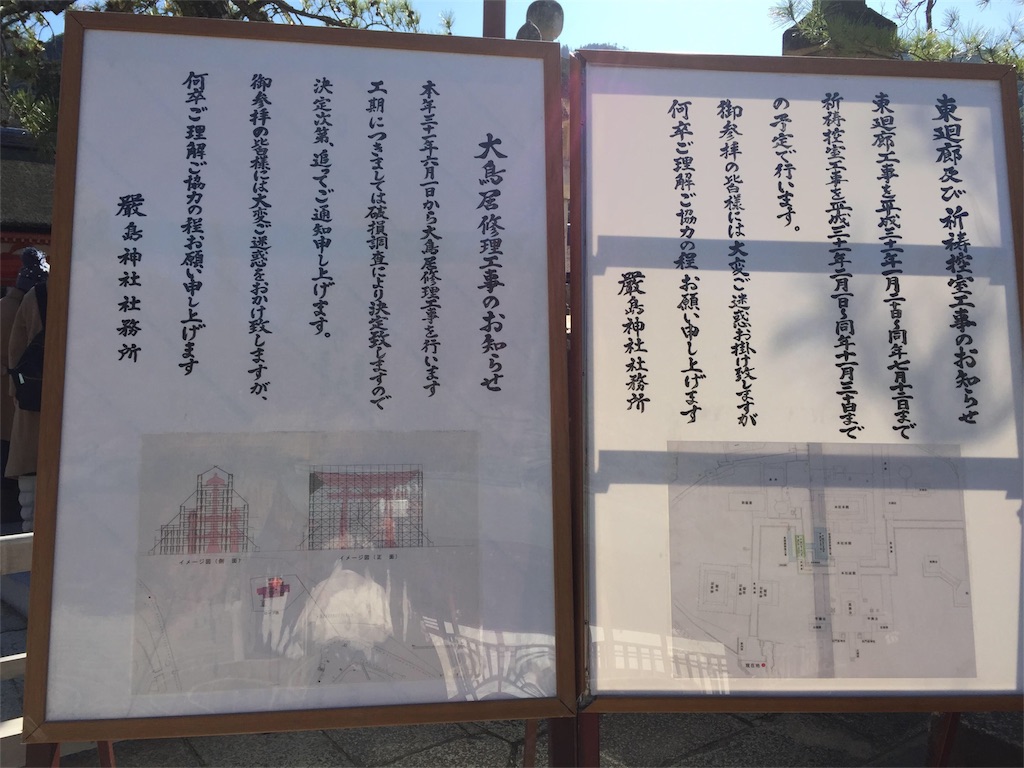 東廻廊及び祈祷控室工事のお知らせ
東廻廊工事を平成三十一年一月二十日～同年七月十二日まで
祈祷控室工事を平成三十一年二月一日～同年十一月三十日まで
の予定で行います。
御参拝の皆様には大変ご迷惑お掛け致しますが
何卒ご理解ご協力の程お願い申し上げます
嚴島神社社務所
現在地
大鳥居修理工事のお知らせ
本年三十一年六月一日から大鳥居修理工事を行います
工期につきましては破損調査により決定致しますので
決定次第、追ってご通知申し上げます。
御参拝の皆様には大変ご迷惑をおかけ致しますが、
何卒ご理解ご協力の程お願い申し上げます
嚴島神社社務所
イメージ図（側 面）
イメージ図（正 面）